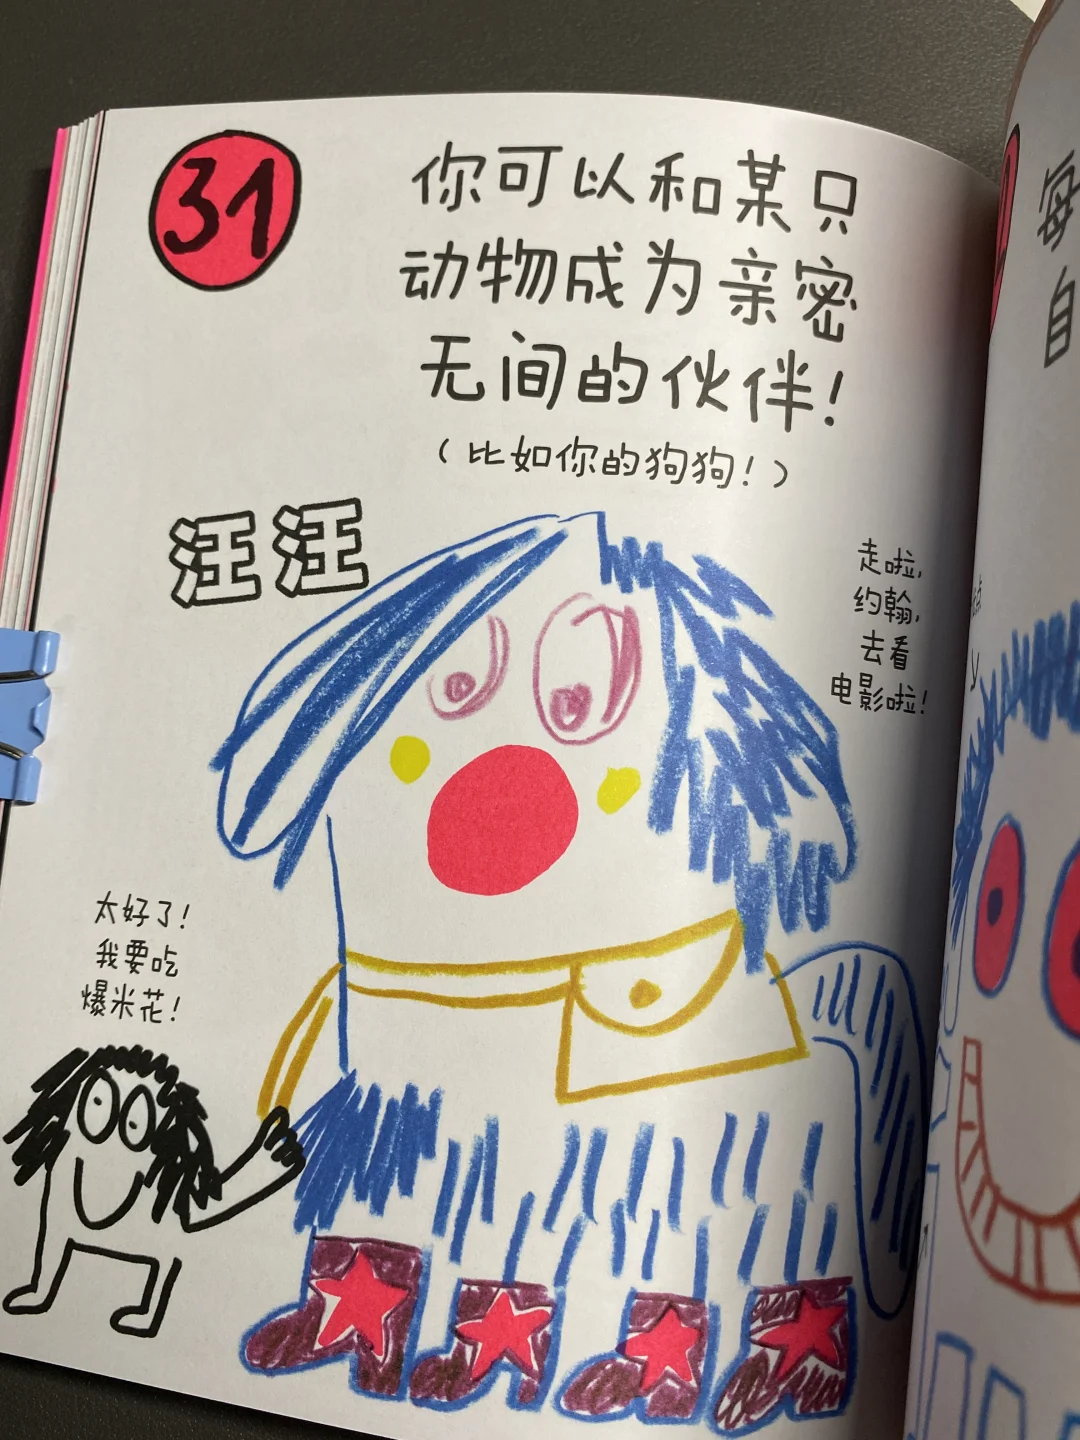 31
你可以和某只
动物成为亲密
无间的伙伴！
（比如你的狗狗！）
汪汪
走啦，
约翰，
去看
电影啦！
太好了！
我要吃
爆米花！
每
自